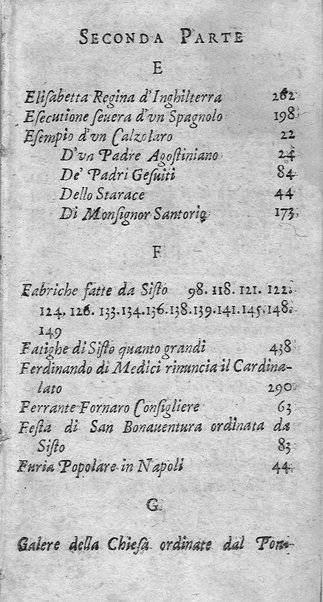 SECONDA PARTE
E
Elisabetta Regina d'Inghilterra 262
Esecutione seuera d'vn Spagnolo 198
Esempio d'vn Calzolaro 22
D'vn Padre Agostiniano 24
De' Padri Gesuiti 84
Dello Starace 44
Di Monsignor Santorio 173
F
Fabriche fatte da Sisto 98. 118. 121. 122.
124. 126. 133. 134. 136. 138. 139. 141. 145. 148.
149
Fatighe di Sisto quanto grandi 438
Ferdinando di Medici rinuncia il Cardina-
lato 290
Ferrante Fornaro Consigliere 63
Festa di San Bonauentura ordinata da
Sisto 83
Furia Popolare in Napoli 44
G
Galere della Chiesa ordinate dal Pon-